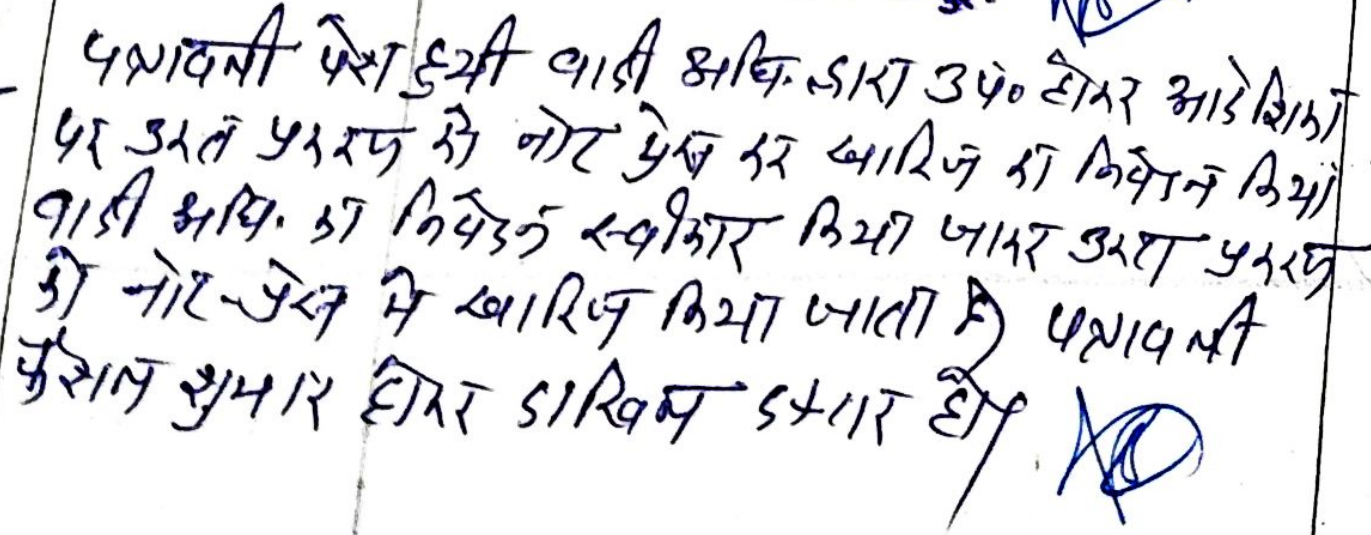 पत्रावली पेश हुयी वादी अधि. द्वारा उप० होकर आदेशिका
पर उक्त प्रकरण को नोट प्रेस कर खारिज का निवेदन किया
वादी अधि. का निवेदन स्वीकार किया जाकर उक्त प्रकरण
को नोट-प्रेस में खारिज किया जाता है पत्रावली
फैशल शुमार होकर दाखिल दफ्तर हो।